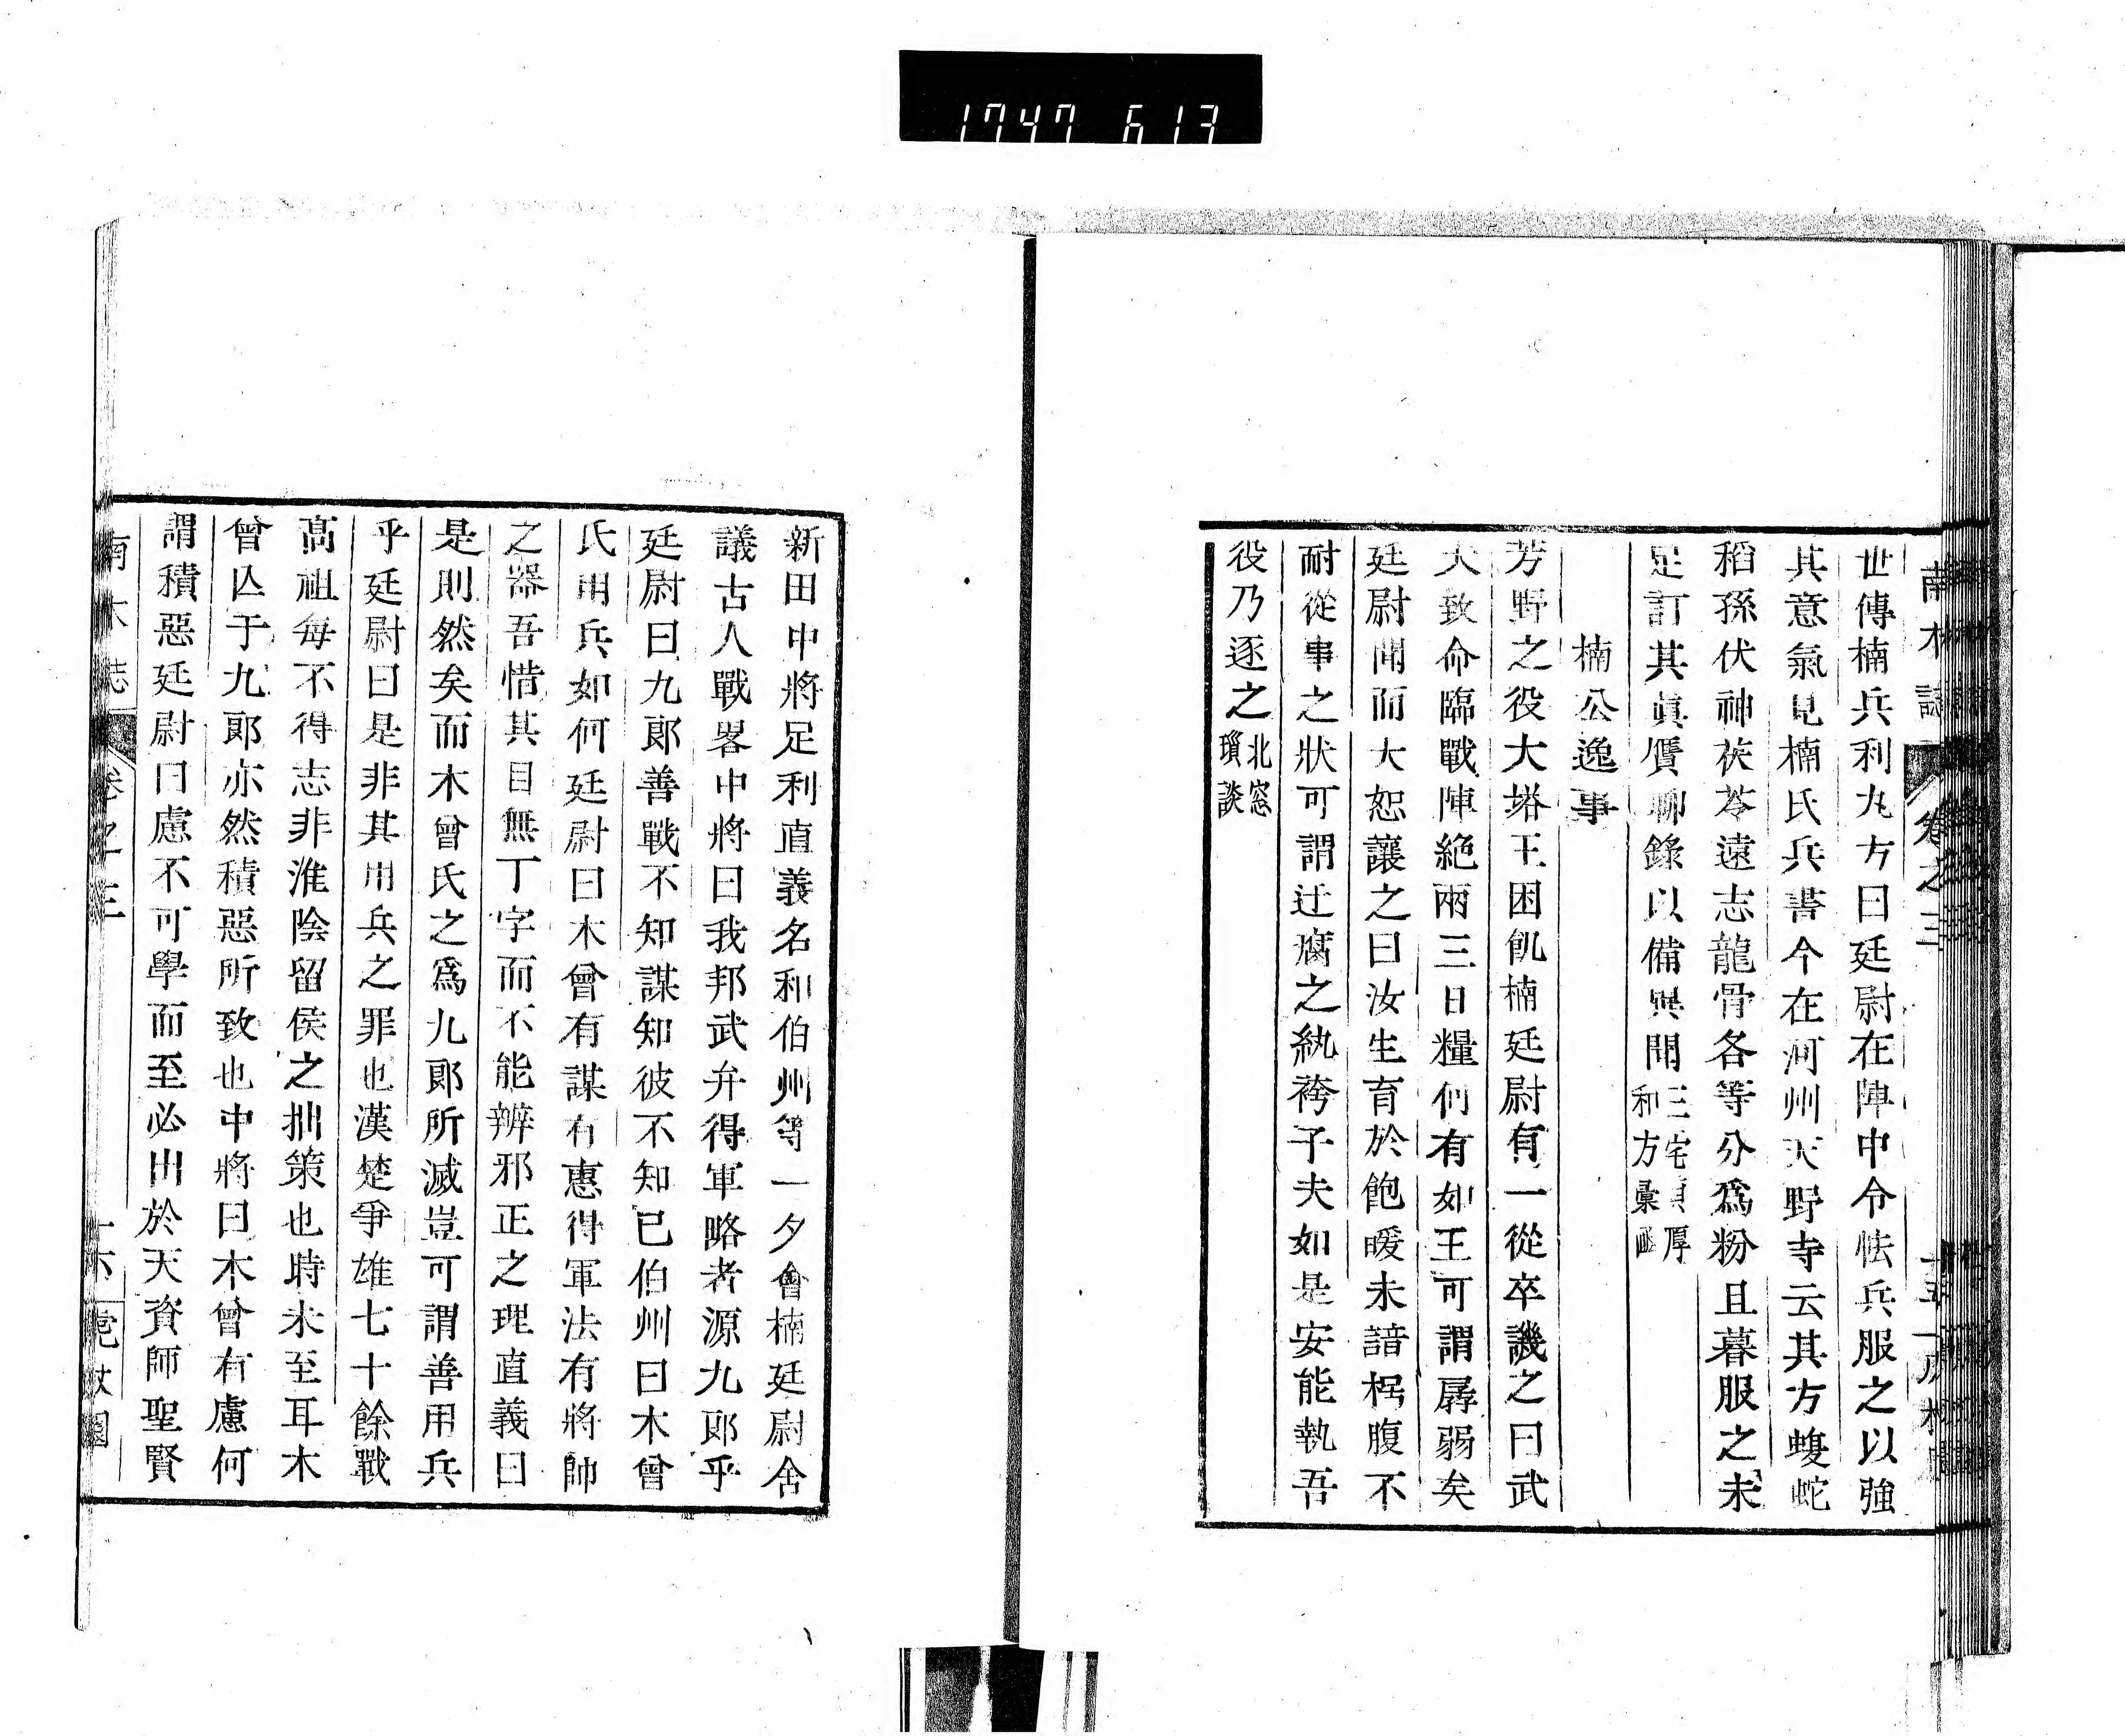 1747 613
世傳楠兵利丸方曰廷尉在陣中令怯兵服之以強
其意氣見楠氏兵書今在河州天野寺云其方蝮蛇
稻孫伏神茯苓遠志龍骨各等分爲粉且暮服之未
足訂其眞贗聊錄以備異聞三宅貞厚
和方彙
楠公逸事
芳野之役大塔王困飢楠廷尉有一從卒譏之曰武
夫致命臨戰陣絶兩三日糧何有如王可謂孱弱矣
廷尉聞而大恕讓之曰汝生育於飽暖未諳枵腹不
耐從事之狀可謂迂腐之紈袴子夫如是安能執吾
役乃逐之北窓
瑣談
新田中將足利直義名和伯州等一夕會楠廷尉舍
議古人戰畧中將曰我邦武弁得軍略者源九郎乎
廷尉曰九郎善戰不知謀知彼不知已伯州曰木曾
氏用兵如何廷尉曰木曾有謀有惠得軍法有將帥
之器吾惜其目無丁字而不能辨邪正之理直義曰
是則然矣而木曾氏之爲九郎所滅豈可謂善用兵
乎廷尉曰是非其用兵之罪也漢楚爭雄七十餘戰
高祖每不得志非淮陰留侯之拙策也時未至耳木
曾亾于九郎亦然積惡所致也中將曰木曾有慮何
謂積惡廷尉曰慮不可學而至必出於天資師聖賢
南木誌 卷之三 十六